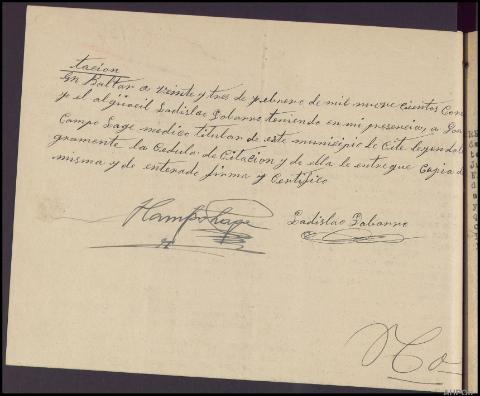 tacion
En Baltar a Veinte y tres de febrero de mil nuve cientos
yo el alguacil Ladislao Gobanno teniendo en mi presencia, a
Campo Lage medico titular de este municipio le Cite leyendole
gramente la Cedula de Citacion y de ella le entregue Copia de
misma y de enterado firma y Certifico
HCampo Lage
Ladislao Gobanno